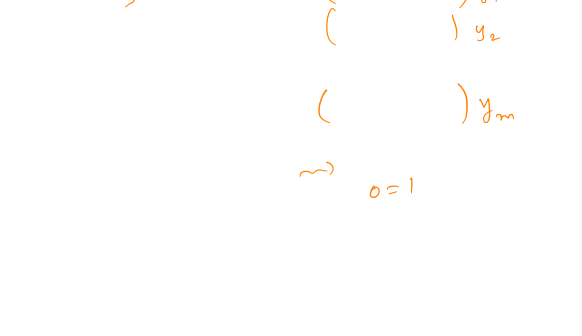 ( ) y₂
( ) yₘ
⇝ 0 = 1